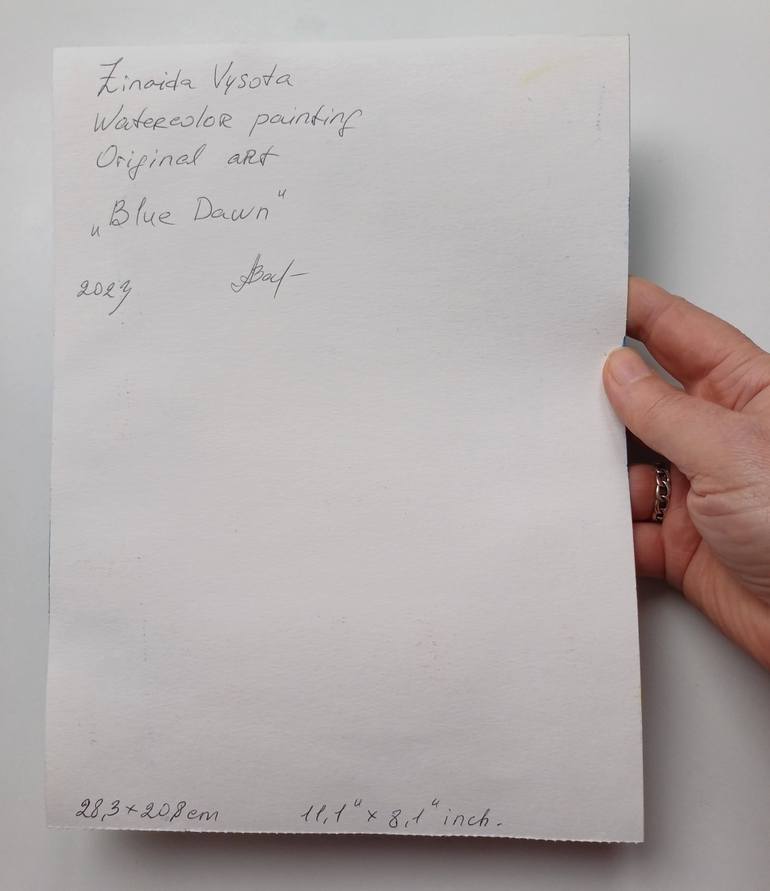 Zinaida Vysota
Watercolor painting
Original art
„Blue Dawn"
2023
28,3 × 20,8 cm 11,1" × 8,1" inch.